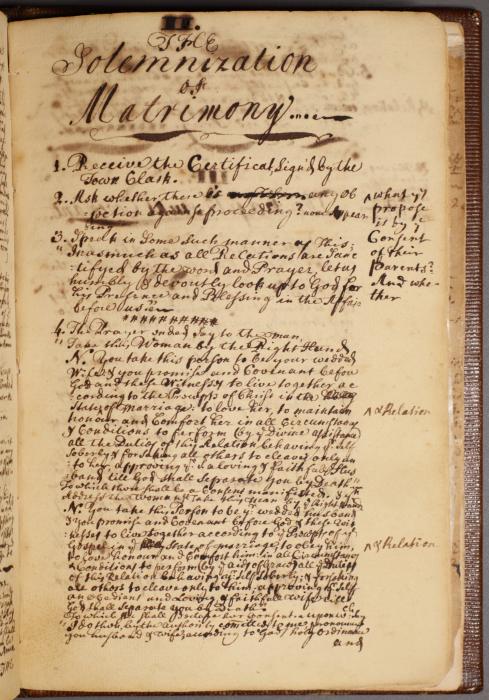 II.
THE
Solemnization
Of
Matrimony
1. Receive the Certificate, Sign'd by the
Town Clark.
2. Ask whether there is any Ob
jection against proceeding? none Appear
ing
^ what yy
propose
is by ye
Consent
of their
Parents?
And whe-
ther
3. Speak in Some Such manner as This;
"Inasmuch as all Relations are Sanc
"tifyed by the word and Prayer, let us
humbly & devoutly look up to God for
his Presence and Blessing in the Affair
before us
4. The Prayer ended, Say to the man
Take this Woman by the Right Hand
N. You take this person to be your wedded
Wife & you promise and Covenant before
God and these Witnesses to live together ac
cording to the Precepts of Christ in the
State of Marriage: to love her, to maintain
^ & Relation
honour and Comfort her in all Circumstances
& Conditions to perform by ye Divine assistance
all the Duties of this Relation behaving yr Self
Soberly & forsaking all others to cleave only un
to her, approving yr Self a loving & faithful Hus
band till God shall Separate you by Death"
To which there shall be a Consent manifested.
Address the Woman Take this man by ye Right Hand
N. You take this Person to be yr wedded husband
& you promise and Covenant before God & these Wit
nesses to live together according to ye Precepts of ye
Gospel in ye State of marriage: to obey him,
^ & Relation
to love honour and Comfort him in all Circumstances
& Conditions to perform by ye aids of grace all ye Duties
of this Relation behaving yr Self Soberly; & forsaking
all others to cleave only to him: approving yr Self
an Obedient and Loving & faithful wife till
God shall Separate you by Death"
To which
I do then, by the authority committed to me pronounce
you husband & wife according to God's holy Ordinance
and